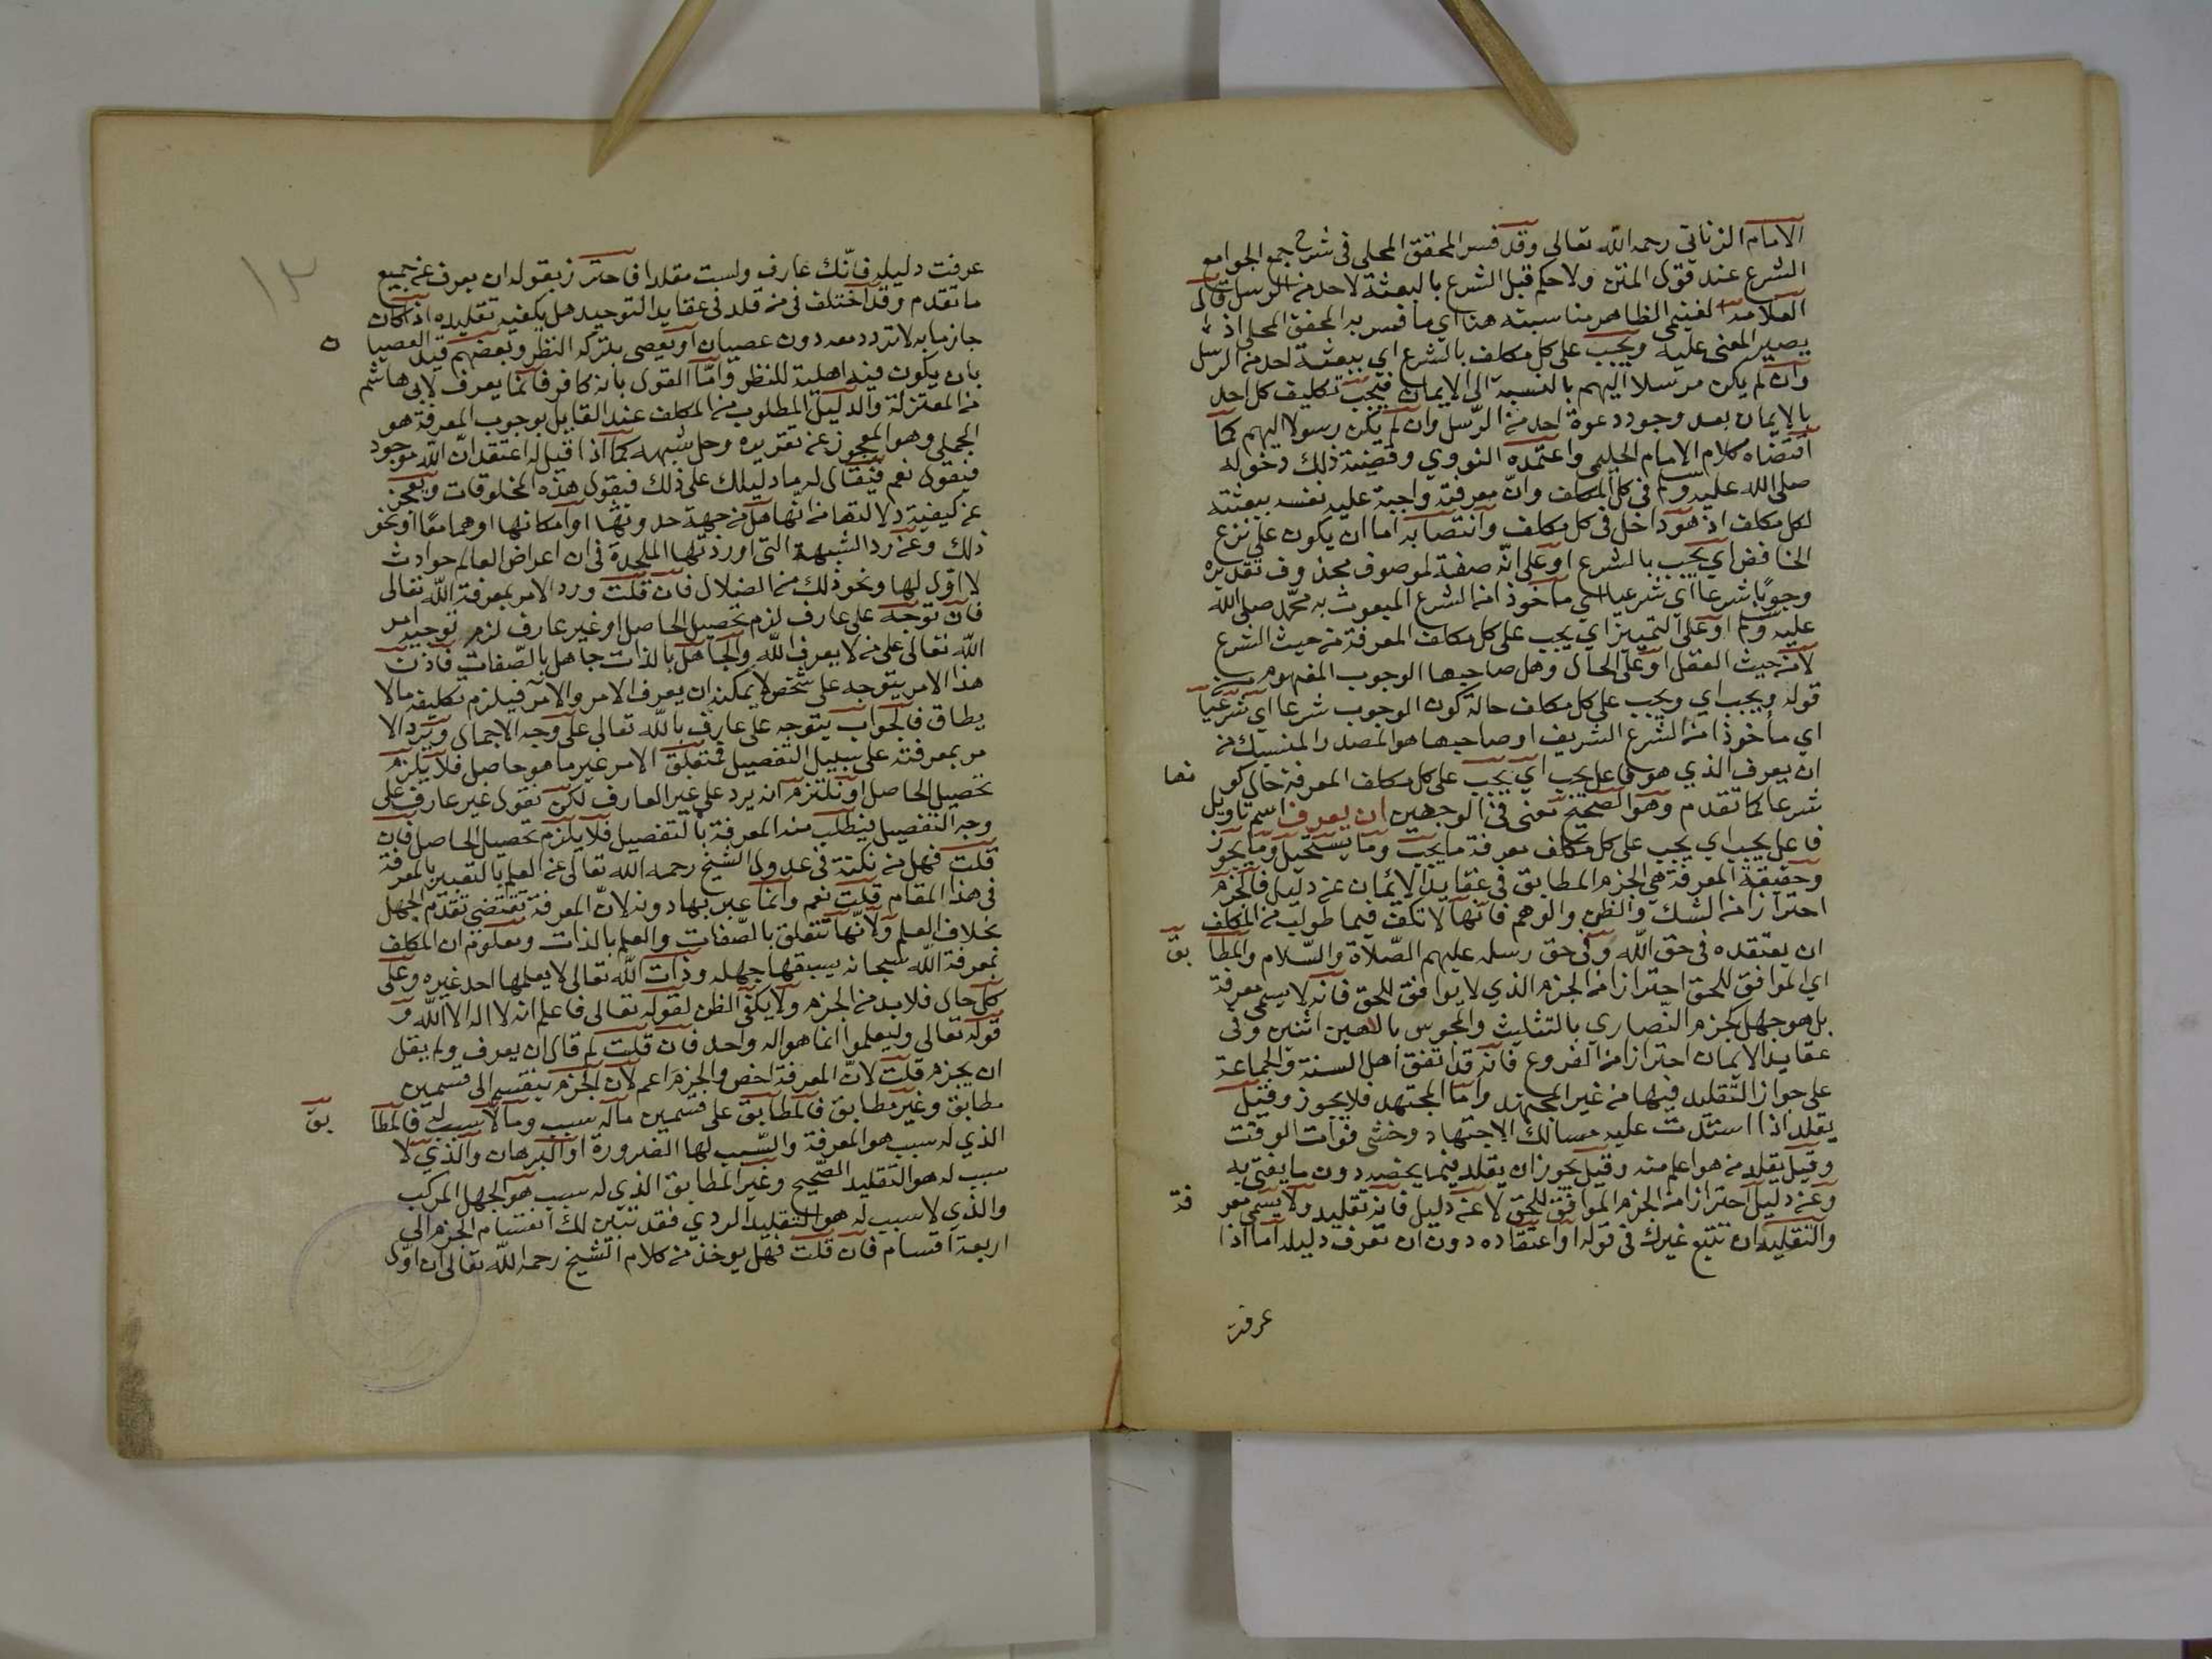 الامام الزناتي رحمه الله تعالى وقد فسر المحقق المحلي في شرح جمع الجوامع
الشرع عند قول المتن ولا حكم قبل الشرع بالبعثة لاحد من الرسل قال
العلامة الغنيمي الظاهر مناسبته هنا اي ما فسر به المحقق المحلي اذ
يصير المعنى عليه ويجب على كل مكلف بالشرع اي ببعثة احد من الرسل
وان لم يكن مرسلا اليهم بالنسبة الى الايمان فيجب تكليف كل احد
بالايمان بعد وجود دعوة احد من الرسل وان لم يكن رسولا اليهم كما
اقتضاه كلام الامام الحليمي واعتمده النووي وقضية ذلك دخوله
صلى الله عليه وسلم في كل المكلف وان معرفته واجبة عليه نفسه ببعثته
لكل مكلف اذ هو داخل في كل مكلف وانتصابه اما ان يكون على نزع
الخافض اي يجب بالشرع او على انه صفة لموصوف محذوف تقديره
وجوبا شرعا اي شرعيا اي ماخوذا من الشرع المبعوث به محمد صلى الله
عليه وسلم او على التمييز اي يجب على كل مكلف المعرفة من حيث الشرع
لا من حيث العقل او على الحال وهل صاحبها الوجوب المفهوم من
قوله ويجب اي ويجب على كل مكلف حالة كون الوجوب شرعا اي شرعيا
اي مأخوذا من الشرع الشريف او صاحبها هو المصدر المنسبك من
ان يعرف الذي هو فاعل يجب اي يجب على كل مكلف المعرفة حال كو نها
شرعا كما تقدم وهو الصحيح معنى في الوجهين ان يعرف اسم تاويل
فاعل يجب اي يجب على كل مكلف معرفة ما يجب وما يستحيل وما يجوز
وحقيقة المعرفة هي الجزم المطابق في عقايد الايمان عن دليل فالجزم
احترازا من الشك والظن والوهم فانها لا تكف فيما طولب من المكلف
ان يعتقده في حق الله وفي حق رسله عليهم الصلاة والسلام والمطا بق
اي الموافق للحق احترازا من الجزم الذي لا يوافق للحق فانه لا يسمى معرفة
بل هو جهل كجزم النصاري بالتثليث والمجوس بالهين اثنين وفي
عقايد الايمان احترازا من الفروع فانه قد اتفق اهل السنة والجماعة
على جواز التقليد فيها من غير المجتهد واما المجتهد فلا يجوز وقيل
يقلد اذا استدت عليه مسالك الاجتهاد وخشي فوات الوقت
وقيل يقلد من هو اعلم منه وقيل يجوز ان يقلد فيما يخصه دون ما يفتي به
وعن دليل احترازا من الجزم الموافق للحق لا عن دليل فانه تقليد ولا يسمى معر فة
والتقليد ان تتبع غيرك في قوله او اعتقاده دون ان تعرف دليله اما اذا
عرفت
عرفت دليله فانك عارف ولست مقلدا فاحترز بقوله ان يعرف عن جميع
ما تقدم وقد اختلف في من قلد في عقايد التوحيد هل يكفيه تقليده اذا كان
جازما به لا تردد معه دون عصيان او يعصي بتركه النظر وبعضهم قيد العصيا ن
بان يكون فيه اهلية للنظر واما القول بانه كافر فانما يعرف لابي هاشم
من المعتزلة والدليل المطلوب من المكلف عند القايل بوجوب المعرفة هو
الجملي وهو المعجوز عن تقريره وحل شبهه كما اذا قيل له اعتقد ان الله موجود
فيقول نعم فيقال له ما دليلك على ذلك فيقول هذه المخلوقات ويعجز
عن كيفية دلالتها من انها هل من جهة حدوثها او امكانها او هما معا او نحو
ذلك وعن رد الشبهة التي اوردتها الملحدة في ان اعراض العالم حوادث
لا اول لها ونحو ذلك من الضلال فان قلت ورد الامر بمعرفة الله تعالى
فان توجه على عارف لزم تحصيل الحاصل او غير عارف لزم توجيه امر
الله تعالى على من لا يعرف الله والجاهل بالذات جاهل بالصفات فاذن
هذا الامر يتوجه على شخص لا يمكنه ان يعرف الامر والآمر فيلزم تكليف ما لا
يطاق فالجواب يتوجه على عارف بالله تعالى على وجه الاجمال ويرد الا
مر بمعرفته على سبيل التفصيل فمتعلق الامر غير ما هو حاصل فلا يلزم
تحصيل الحاصل او نلتزم انه يرد على غير العارف لكن نقول غير عارف على
وجه التفصيل فيطلب منه المعرفة بالتفصيل فلا يلزم تحصيل الحاصل فان
قلت فهل من نكتة في عدول الشيخ رحمه الله تعالى عن العلم بالتعبير بالمعرفة
في هذا المقام قلت نعم وانما عبر بها دونه لان المعرفة تقتضي تقدم الجهل
بخلاف العلم ولانها تتعلق بالصفات والعلم بالذات ومعلوم ان المكلف
بمعرفة الله سبحانه يسبقها جهله وذات الله تعالى لا يعلمها احد غيره وعلى
كل حال فلابد من الجزم ولا يكفي الظن لقوله تعالى فاعلم انه لا اله الا الله و
قوله تعالى وليعلموا انما هو اله واحد فان قلت لم قال ان يعرف ولم يقل
ان يجزم قلت لان المعرفة اخص والجزم اعم لان الجزم ينقسم الى قسمين
مطابق وغير مطابق فالمطابق على قسمين ما له سبب وما لا سبب له فالمطا بق
الذي له سبب هو المعرفة والسبب لها الضرورة او البرهان والذي لا
سبب له هو التقليد الصحيح وغير المطابق الذي له سبب هو الجهل المركب
والذي لا سبب له هو التقليد الردي فقد تبين لك انقسام الجزم الى
اربعة اقسام فان قلت فهل يوخذ من كلام الشيخ رحمه الله تعالى ان اول